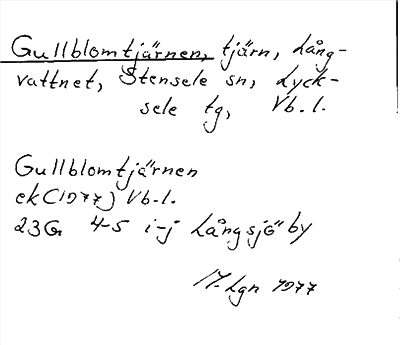 Gullblomtjärnen, tjärn, Lång-
vattnet, Stensele sn, Lyck-
sele tg, Vb. l.
Gullblomtjärnen
ek (1977) Vb. l.
23G 4-5 i-j Långsjöby
17. Lgn 1977